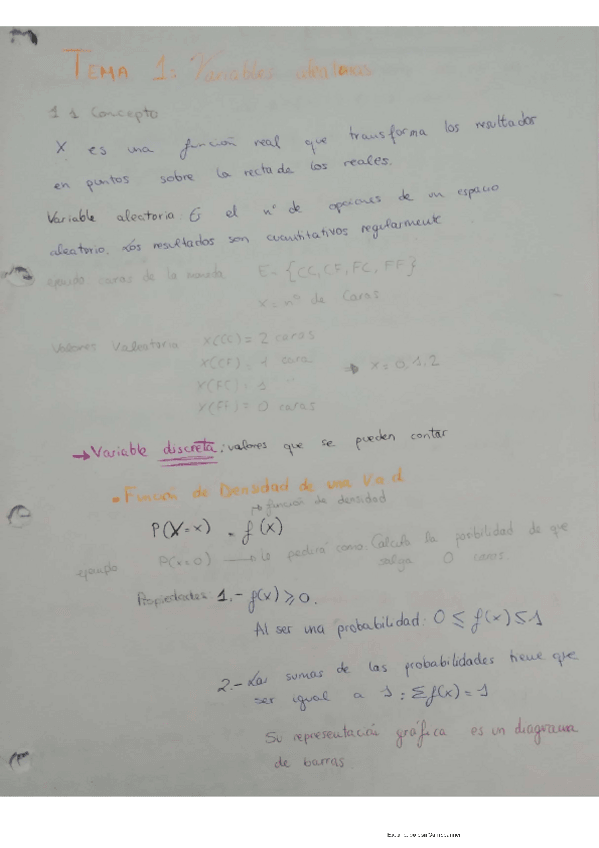 TEMA 1: Variables aleatorias
1 1 Concepto
X es una función real que transforma los resultados
en puntos sobre la recta de los reales.
Variable aleatoria: el nº de opciones de un espacio
aleatorio. Los resultados son cuantitativos regularmente
ejemplo caras de la moneda E = {CC, CF, FC, FF}
X = nº de Caras
Valores Valeatoria X(CC) = 2 caras
X(CF) = 1 cara → X = 0, 1, 2
X(FC) = 1 "
X(FF) = 0 caras
→ Variable discreta: valores que se pueden contar
Función de Densidad de una V a d
función de densidad
P(X = x) = f(x)
ejemplo P(X = 0) → le pedirá como: Calcula la de que
salga 0 caras.
Propiedades: 1.- f(x) ⩾ 0.
Al ser una probabilidad: 0 ≤ f(x) ≤ 1
2.- Las sumas de las probabilidades tiene que
ser igual a 1: Σf(x) = 1
Su representación gráfica es un diagrama
de barras